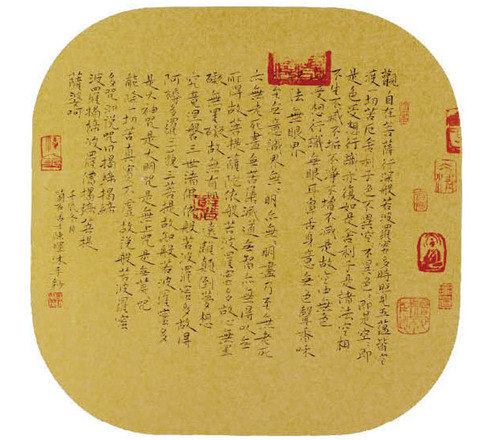 觀自在菩薩行深般若波羅蜜多時照見五蘊皆空
度一切苦厄舍利子色不異空空不異色色即是空空即
是色受想行識亦復如是舍利子是諸法空相
不生不滅不垢不淨不增不減是故空中無色
受想行識無眼耳鼻舌身意無色聲香味
法無眼界
至無意識界無無明亦無無明盡乃至無老死
亦無老死盡無苦集滅道無智亦無得以無
所得故菩提薩埵依般若波羅蜜多故心無罣
礙無罣礙故無有遠離顛倒夢想
究竟涅槃三世諸佛依般若波羅蜜多故得
阿耨多羅三藐三菩提故知般若波羅蜜多
是大神咒是大明咒是無上咒是無等等咒
能除一切苦真實不虛故說般若波羅蜜
多咒即說咒曰揭諦揭諦
波羅揭諦波羅僧揭諦菩提
薩婆訶